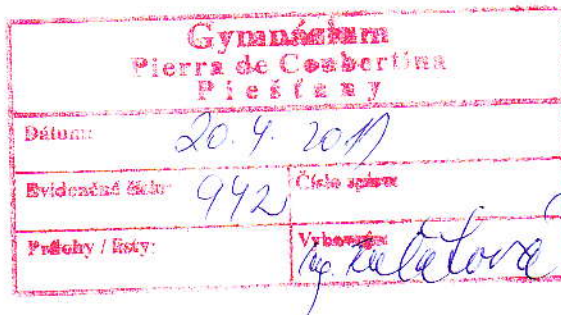 Gymnázium
Pierra de Coubertina
Piešťany
Dátum: 20. 4.
Evidenčné číslo: 942 Číslo spisu:
Prílohy / listy: Vybavuje: Ing.